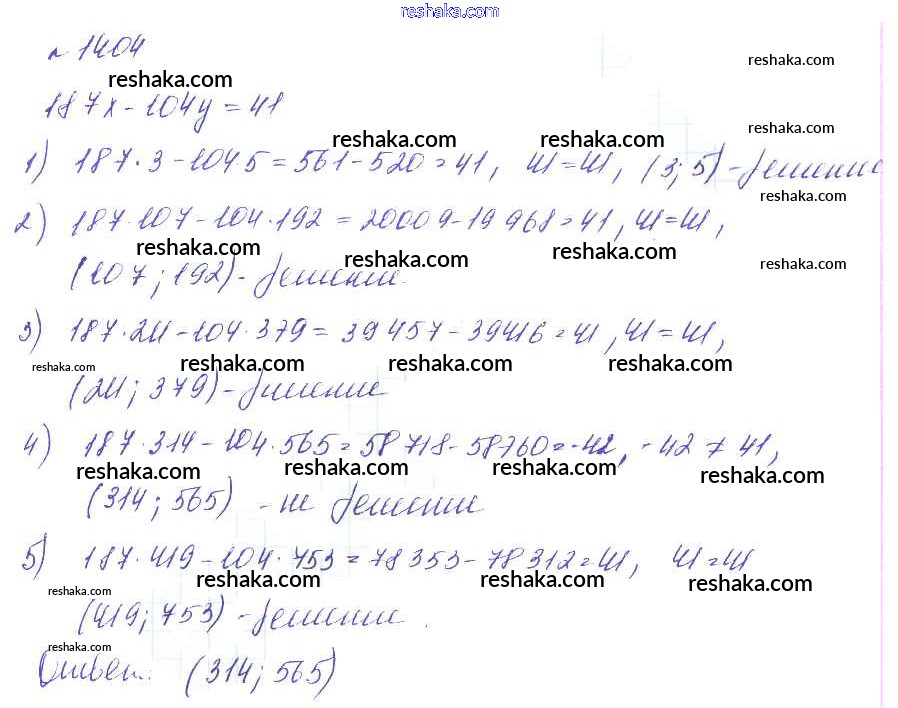 reshaka.com
№ 1404
reshaka.com reshaka.com
187x - 104y = 41
reshaka.com reshaka.com reshaka.com
1) 187·3 - 104·5 = 561 - 520 = 41, 41 = 41, (3; 5) - решение
reshaka.com
2) 187·107 - 104·192 = 20009 - 19968 = 41, 41 = 41,
reshaka.com reshaka.com reshaka.com reshaka.com
(107; 192) - решение.
3) 187·211 - 104·379 = 39457 - 39416 = 41, 41 = 41,
reshaka.com reshaka.com reshaka.com reshaka.com
(211; 379) - решение
4) 187·314 - 104·565 = 58718 - 58760 = -42, -42 ≠ 41,
reshaka.com reshaka.com reshaka.com reshaka.com
(314; 565) - не решение
5) 187·419 - 104·753 = 78353 - 78312 = 41, 41 = 41
reshaka.com reshaka.com reshaka.com reshaka.com
(419; 753) - решение.
reshaka.com
Ответ: (314; 565)